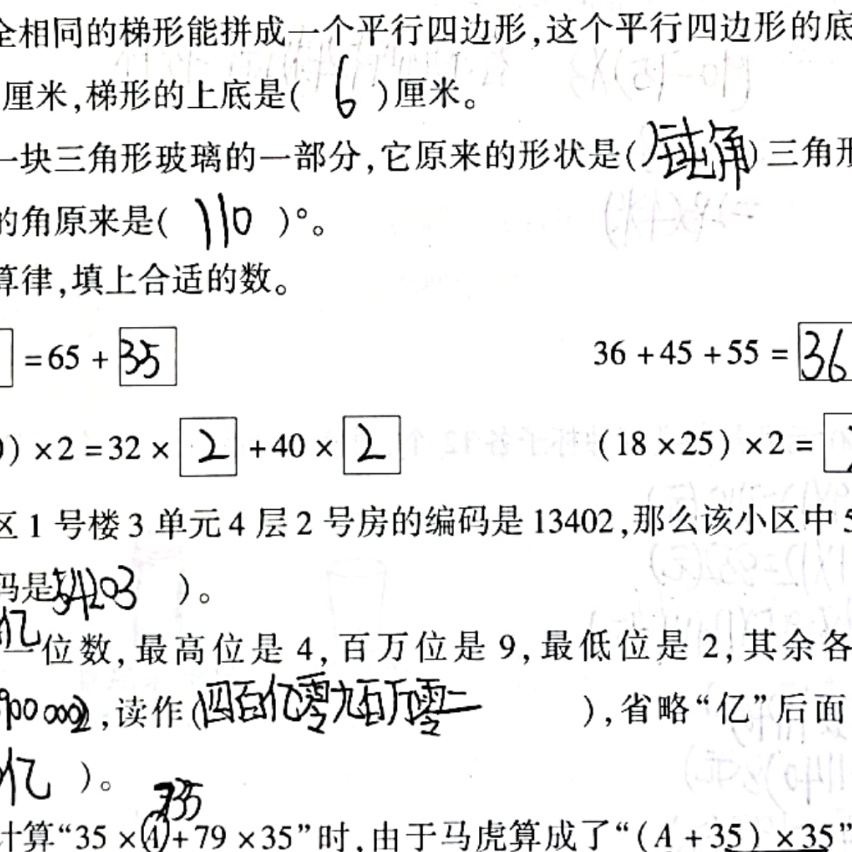 全相同的梯形能拼成一个平行四边形,这个平行四边形的底
厘米,梯形的上底是( 6 )厘米。
一块三角形玻璃的一部分,它原来的形状是(钝角)三角形
的角原来是( 110 )°。
算律,填上合适的数。
=65+35 36+45+55=36
)×2=32×2+40×2 (18×25)×2=
区1号楼3单元4层2号房的编码是13402,那么该小区中5
码是(54203 )。
亿
一位数,最高位是4,百万位是9,最低位是2,其余各
900 0002,读作(四百亿零九百万零二 ),省略“亿”后面
亿 )。
735
计算“35×A+79×35”时,由于马虎算成了“(A+35)×35”